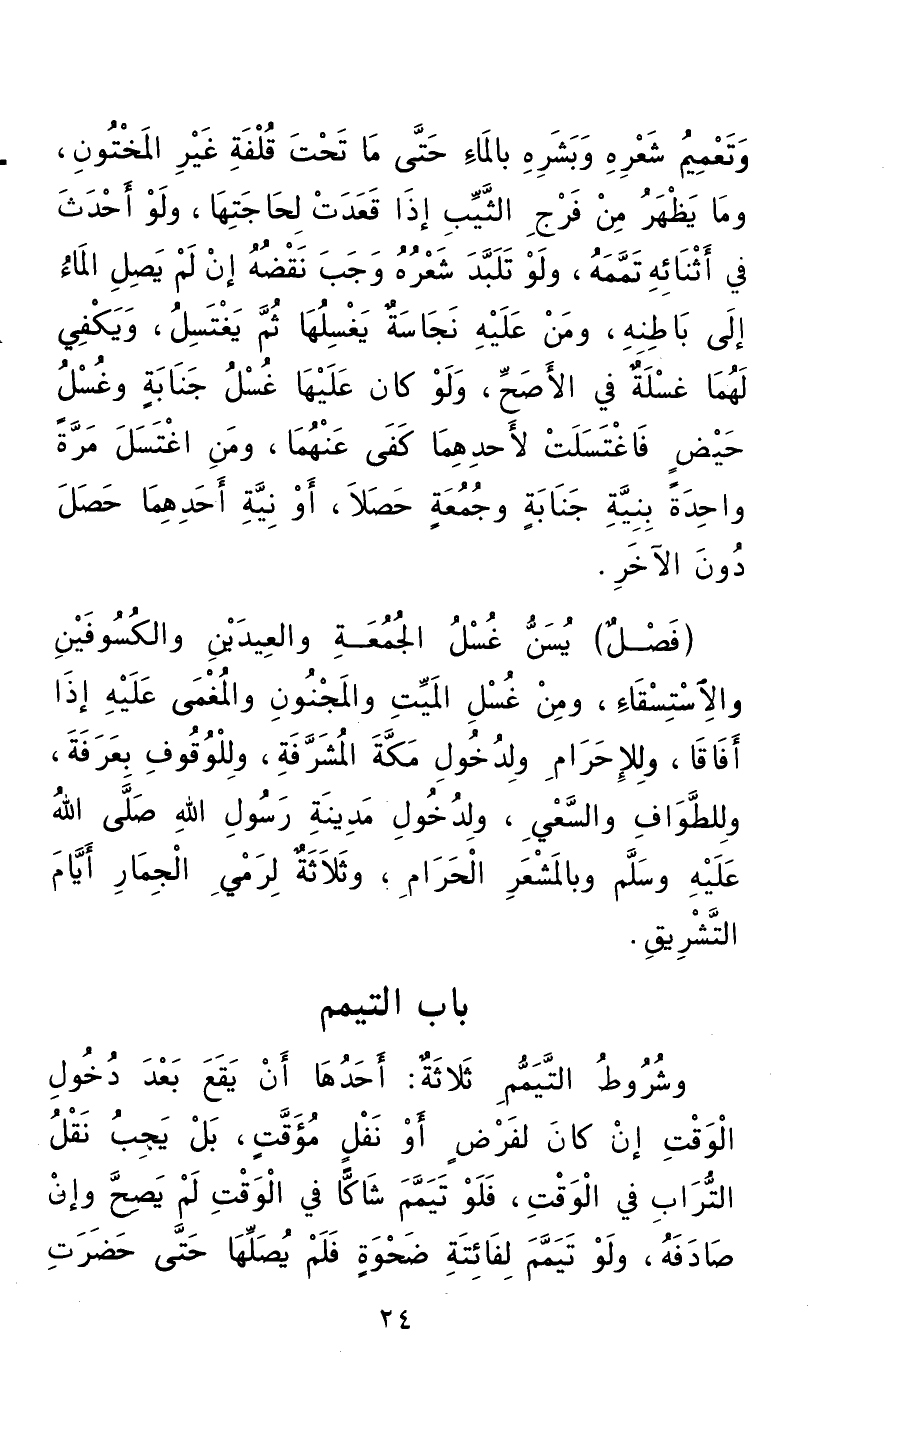 وَتَعْمِيمُ شَعْرِهِ وَبَشَرِهِ بالمَاءِ حَتَّى مَا تَحْتَ قُلْفَةِ غَيْرِ المَخْتُونِ ،
وما يَظْهَرُ مِنْ فَرْجِ الثَّيِّبِ إذَا قَعَدَتْ لِحَاجَتِهَا ، ولَوْ أَحْدَثَ
في أَثْنَائِهِ تَمَّمَهُ ، ولَوْ تَلَبَّدَ شَعْرُهُ وَجَبَ نَقْضُهُ إنْ لَمْ يَصِلِ المَاءُ
إلَى بَاطِنِهِ ، ومَنْ عَلَيْهِ نَجَاسَةٌ يَغْسِلُهَا ثُمَّ يَغْتَسِلُ ، وَيَكْفِي
لَهُمَا غسْلَةٌ في الأَصَحِّ ، وَلَوْ كان عَلَيْهَا غُسْلُ جَنَابَةٍ وغُسْلُ
حَيْضٍ فَاغْتَسَلَتْ لأَحدِهِمَا كَفَى عَنْهُمَا ، ومَنِ اغْتَسَلَ مَرَّةً
واحِدَةً بِنِيَّةِ جَنَابَةٍ وجُمُعَةٍ حَصَلَا ، أَوْ نِيَّةِ أَحَدِهِمَا حَصَلَ
دُونَ الآخَرِ .
(فَصْـلٌ) يُسَنُّ غُسْلُ الجُمُعَـةِ والعِيدَيْنِ والكُسُوفَيْنِ
والِاسْتِسْقَاءِ ، ومِنْ غُسْلِ المَيِّتِ والمَجْنُونِ والمُغْمَى عَلَيْهِ إذَا
أَفَاقَا ، ولِلإحْرَامِ ولدُخُولِ مَكَّةَ المُشَرَّفَةِ ، وللْوُقُوفِ بِعَرَفَةَ ،
وللطَّوَافِ والسَّعْيِ ، ولِدُخُولِ مَدِينَةِ رَسُولِ اللهِ صَلَّى اللهُ
عَلَيْهِ وسَلَّم وبالمَشْعَرِ الْحَرَامِ ، وثَلَاثَةٌ لِرَمْيِ الْجِمَارِ أَيَّامَ
التَّشْرِيقِ .
باب التيمم
وشُرُوطُ التَّيَمُّمِ ثَلاثَةٌ: أَحَدُهَا أَنْ يَقَعَ بَعْدَ دُخُولِ
الْوَقْتِ إنْ كانَ لفَرْضٍ أَوْ نَفْلٍ مُؤَقَّتٍ ، بَلْ يَجِبُ نَقْلُ
التُّرَابِ في الْوَقْتِ ، فَلَوْ تَيَمَّمَ شَاكًّا في الْوَقْتِ لَمْ يَصِحَّ وإنْ
صَادَفَهُ ، ولَوْ تَيَمَّمَ لِفَائِتَةٍ ضَحْوَةٍ فَلَمْ يُصَلِّهَا حَتَّى حَضَرَتِ
٢٤